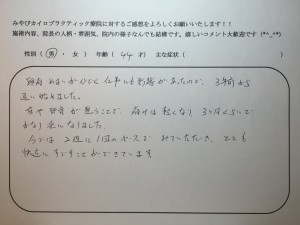 みやびカイロプラクティック療院に対するご感想をよろしくお願いいたします！！
施術内容、院長の人柄・雰囲気、院内の様子なんでも結構です。嬉しいコメント大歓迎です（*^_^*）
性別（男・女） 年齢（44才） 主な症状（ ）
仕事にも影響があったので、3年前から
通い始めました。
が悪うことで、軽くなり、3ヶ月くらいで
かなり楽になりました。
今では2週に1回のペースでみていただき、とても
快適にすごすことができています